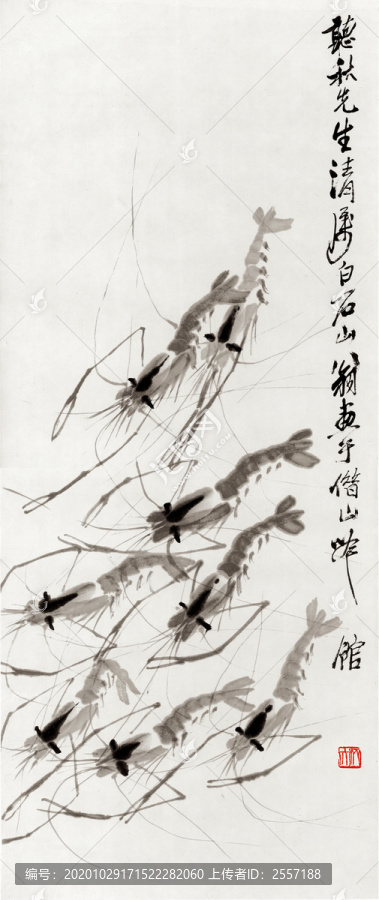 聽秋先生清屬白石山翁畫于借山吟館
编号：20201029171522282060 上传者ID：2557188